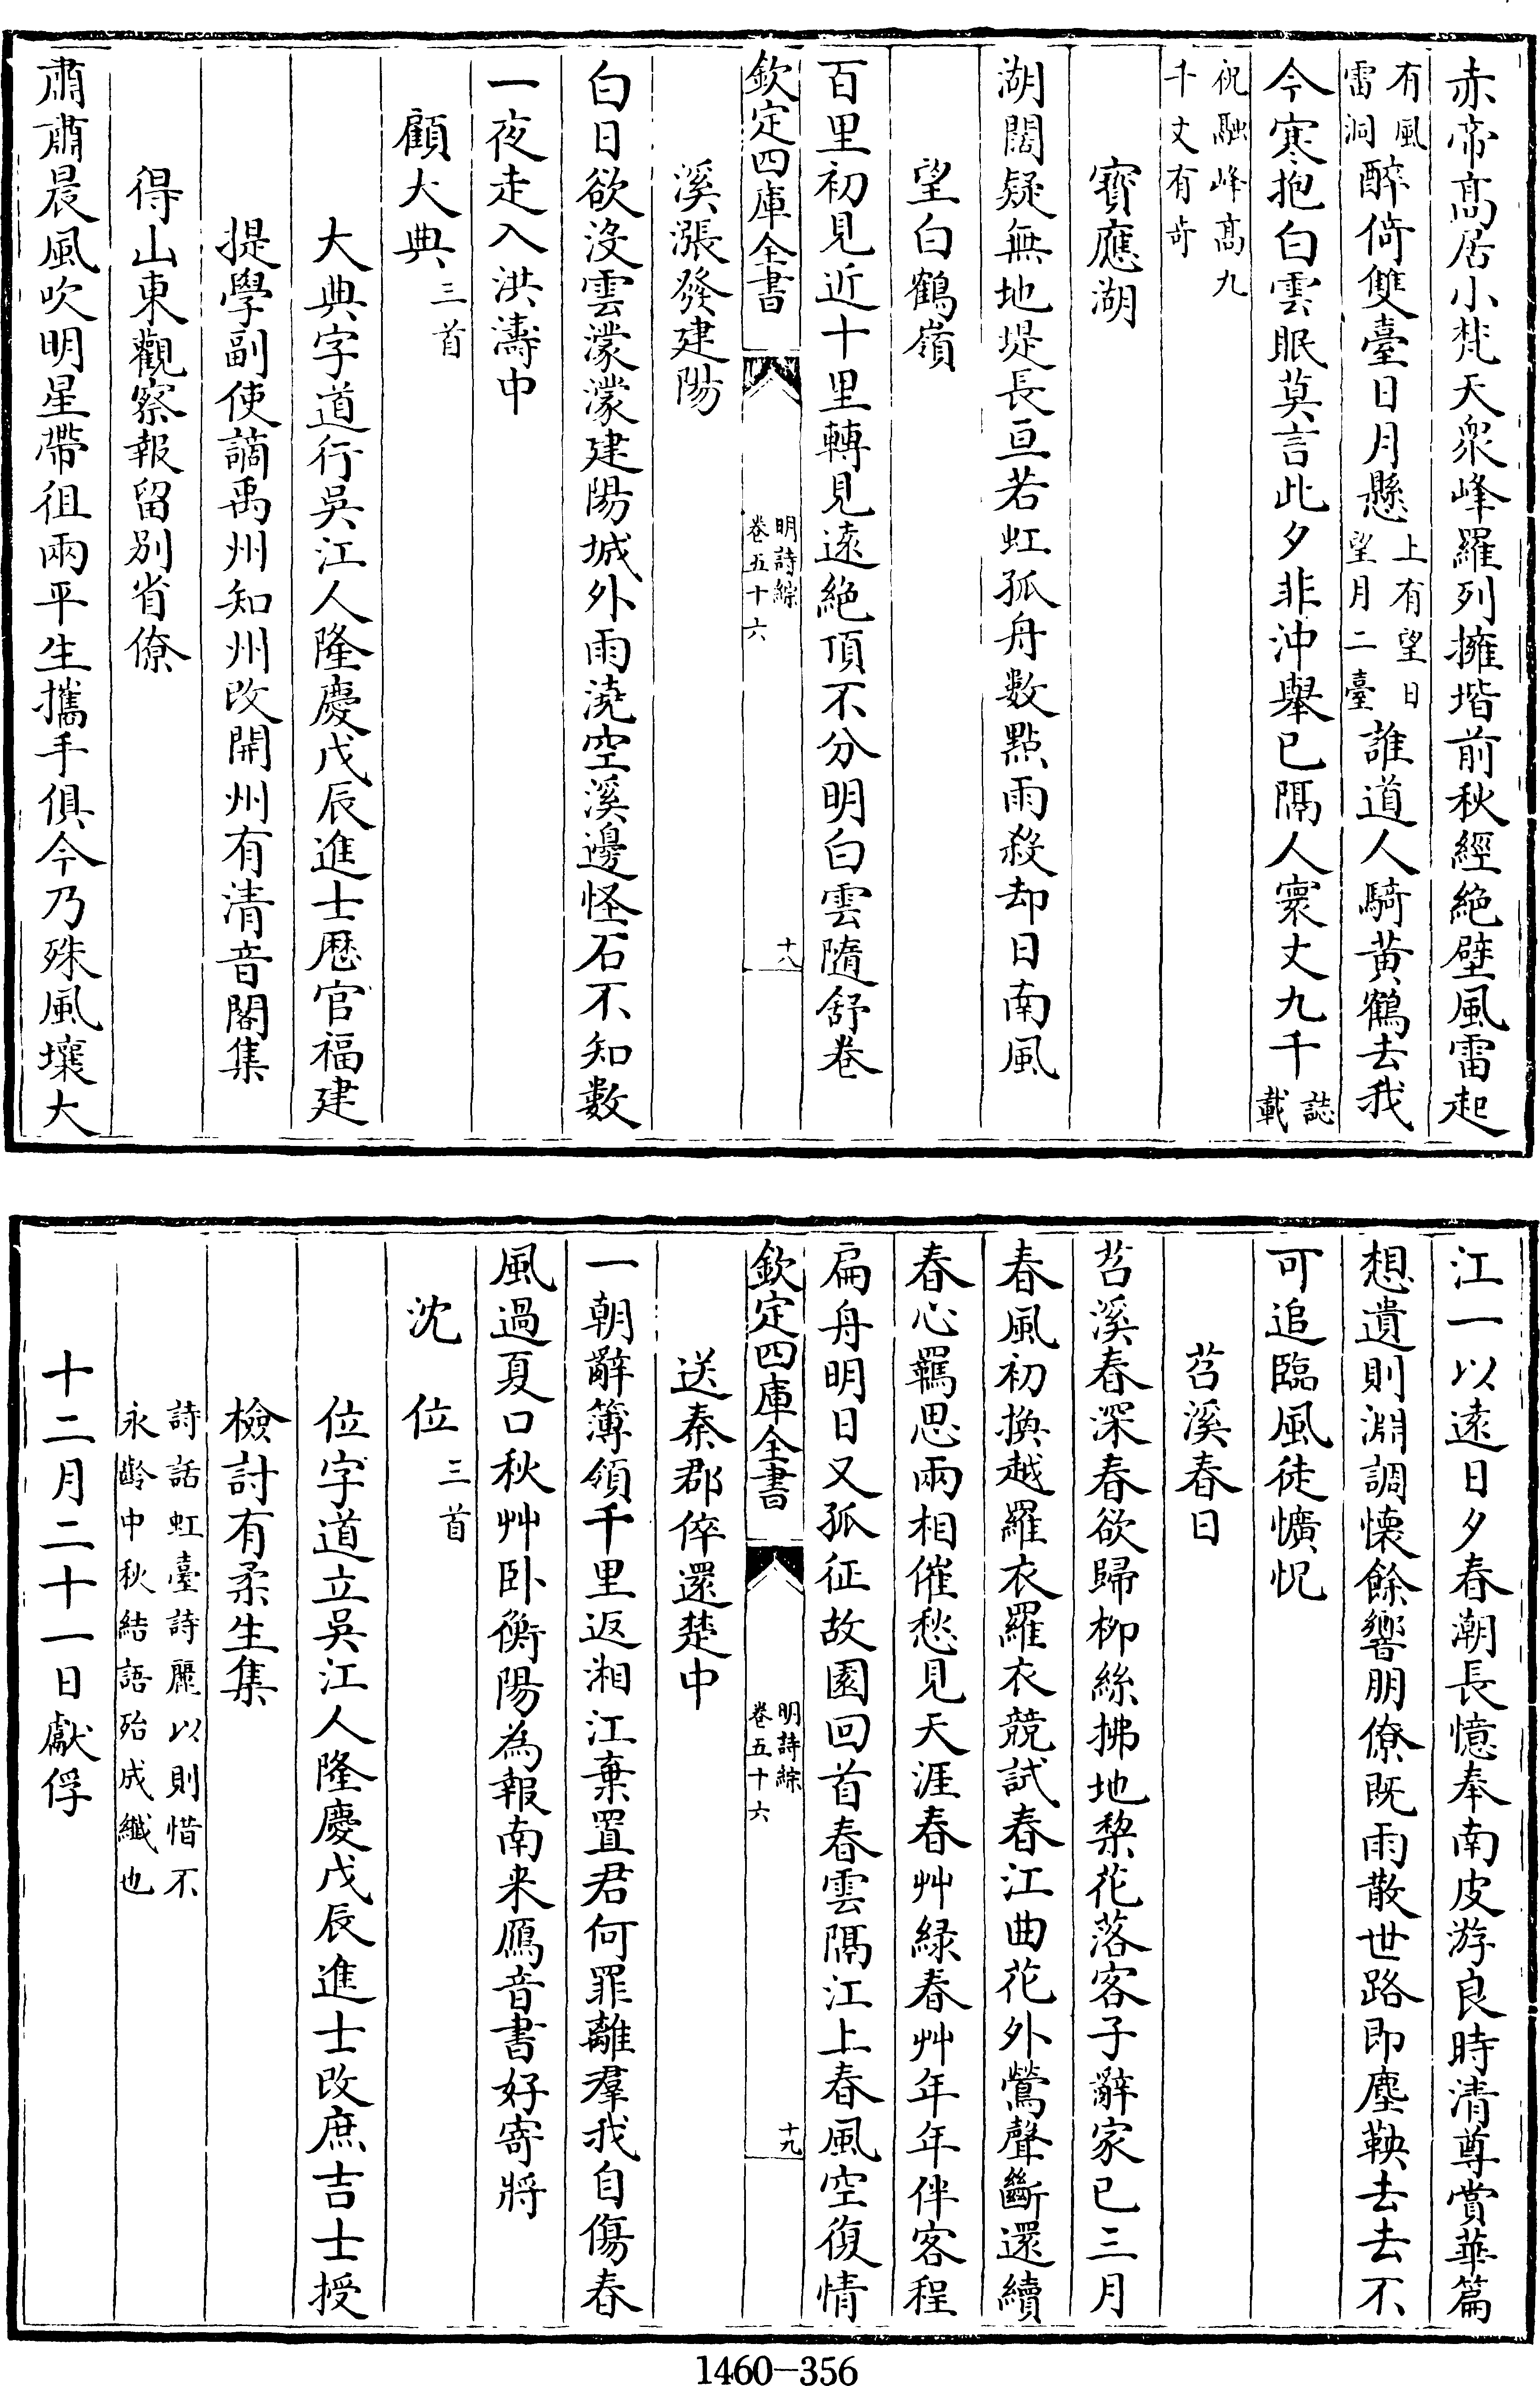 赤帝高居小梵天衆峰羅列擁堦前秋經絶壁風雷起
有風雷洞醉倚雙臺日月懸上有望日望月二臺誰道人騎黄鶴去我
今寒抱白雲眠莫言此夕非沖舉已隔人寰丈九千誌載
祝融峰髙九千丈有奇
寶應湖
湖闊疑無地堤長亘若虹孤舟數點雨殺却日南風
望白鶴嶺
百里初見近十里轉見逺絶頂不分明白雲隨舒巻
欽定四庫全書
明詩綜
巻五十六
十八
溪漲發建陽
白日欲没雲濛濛建陽城外雨澆空溪邊怪石不知數
一夜走入洪濤中
顧大典三首
大典字道行吳江人隆慶戊辰進士歴官福建
提學副使謫禹州知州改開州有清音閣集
得山東觀察報留别省僚
肅肅晨風吹明星帶徂兩平生攜手俱今乃殊風壤大
江一以逺日夕春潮長憶奉南皮游良時清尊賞華篇
想遺則淵調懐餘響朋僚既雨散世路即塵鞅去去不
可追臨風徒懭怳
苕溪春日
苕溪春深春欲歸栁絲拂地棃花落客子辭家已三月
春風初換越羅衣羅衣競試春江曲花外鶯聲斷還續
春心羈思兩相催愁見天涯春艸緑春艸年年伴客程
扁舟明日又孤征故園回首春雲隔江上春風空復情
欽定四庫全書
明詩綜
巻五十六
十九
送秦郡倅還楚中
一朝辭簿領千里返湘江棄置君何罪離羣我自傷春
風過夏口秋艸卧衡陽為報南来鴈音書好寄將
沈位三首
位字道立吳江人隆慶戊辰進士改庶吉士授
檢討有柔生集
詩話虹臺詩麗以則惜不
永齡中秋結語殆成纎也
十二月二十一日獻俘
1460-356